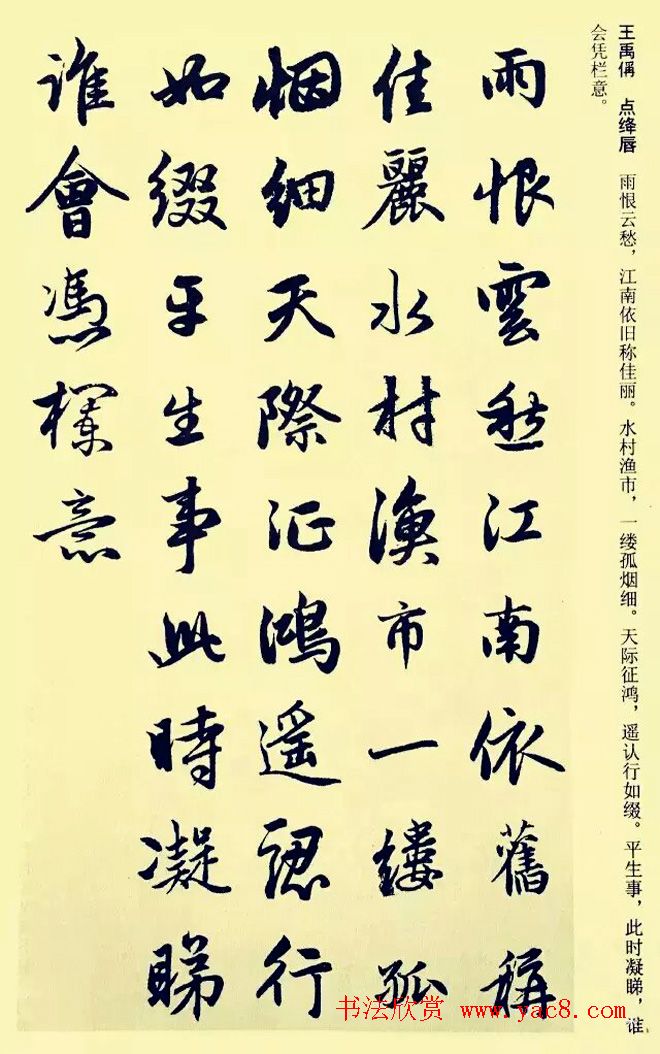 王禹偁 点绛唇 雨恨云愁，江南依旧称佳丽。水村渔市，一缕孤烟细。天际征鸿，遥认行如缀。平生事，此时凝睇，谁
会凭栏意。
雨恨雲愁江南依舊稱
佳麗水村漁市一縷孤
烟細天際征鴻遥認行
如綴平生事此時凝睇
谁會憑欄意
书法欣赏 www.yac8.com